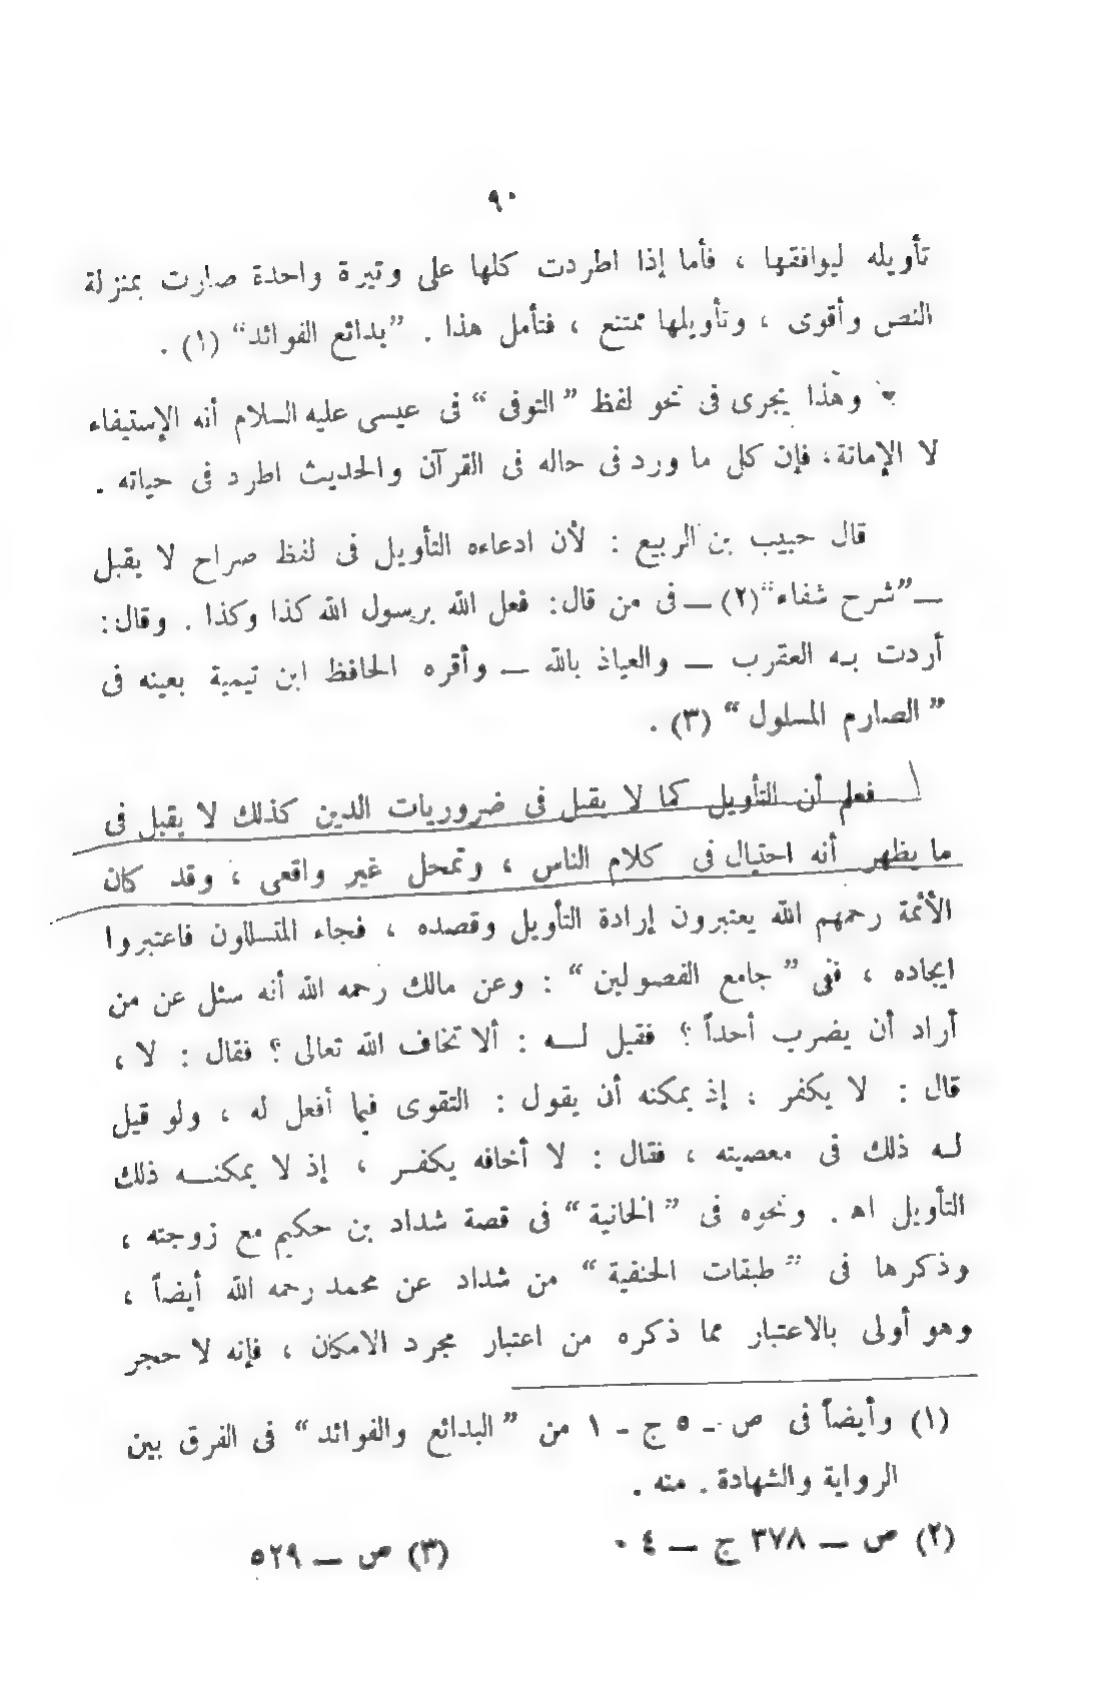 ٩٠
تأويله ليوافقها ، فأما إذا اطردت كلها على وتيرة واحدة صارت بمنزلة
النص وأقوى ، وتأويلها ممتنع ، فتأمل هذا . ”بدائع الفوائد“ (١) .
وهذا يجرى فى نحو لفظ ”التوفى“ فى عيسى عليه السلام أنه الإستيفاء
لا الإماتة، فإن كل ما ورد فى حاله فى القرآن والحديث اطرد فى حياته .
قال حبيب بن الربيع : لأن ادعاءه التأويل فى لفظ صراح لا يقبل
ــ”شرح شفاء“(٢) ــ فى من قال: فعل الله برسول الله كذا وكذا . وقال:
أردت به العقرب ــ والعياذ بالله ــ وأقره الحافظ ابن تيمية بعينه فى
”الصارم المسلول“ (٣) .
فعلم أن التأويل كما لا يقبل فى ضروريات الدين كذلك لا يقبل فى
ما يظهر أنه احتيال فى كلام الناس ، وتمحل غير واقعى ، وقد كان
الأئمة رحمهم الله يعتبرون إرادة التأويل وقصده ، فجاء المتسللون فاعتبروا
ايجاده ، ففى ”جامع الفصولين“ : وعن مالك رحمه الله أنه سئل عن من
أراد أن يضرب أحداً ؟ فقيل لــه : ألا تخاف الله تعالى ؟ فقال : لا ،
قال : لا يكفر ، إذ يمكنه أن يقول : التقوى فيما أفعل له ، ولو قيل
لـه ذلك فى معصيته ، فقال : لا أخافه يكفـر ، إذ لا يمكنــه ذلك
التأويل اهـ . ونحوه فى ”الخانية“ فى قصة شداد بن حكيم مع زوجته ،
وذكرها فى ”طبقات الحنفية“ من شداد عن محمد رحمه الله أيضاً ،
وهو أولى بالاعتبار مما ذكره من اعتبار مجرد الامكان ، فإنه لا حجر
(١) وأيضاً فى ص ــ ٥ ج ـ ١ من ”البدائع والفوائد“ فى الفرق بين
الرواية والشهادة . منه .
(٢) ص ــ ٣٧٨ ج ــ ٤ . (٣) ص ــ ٥٢٩